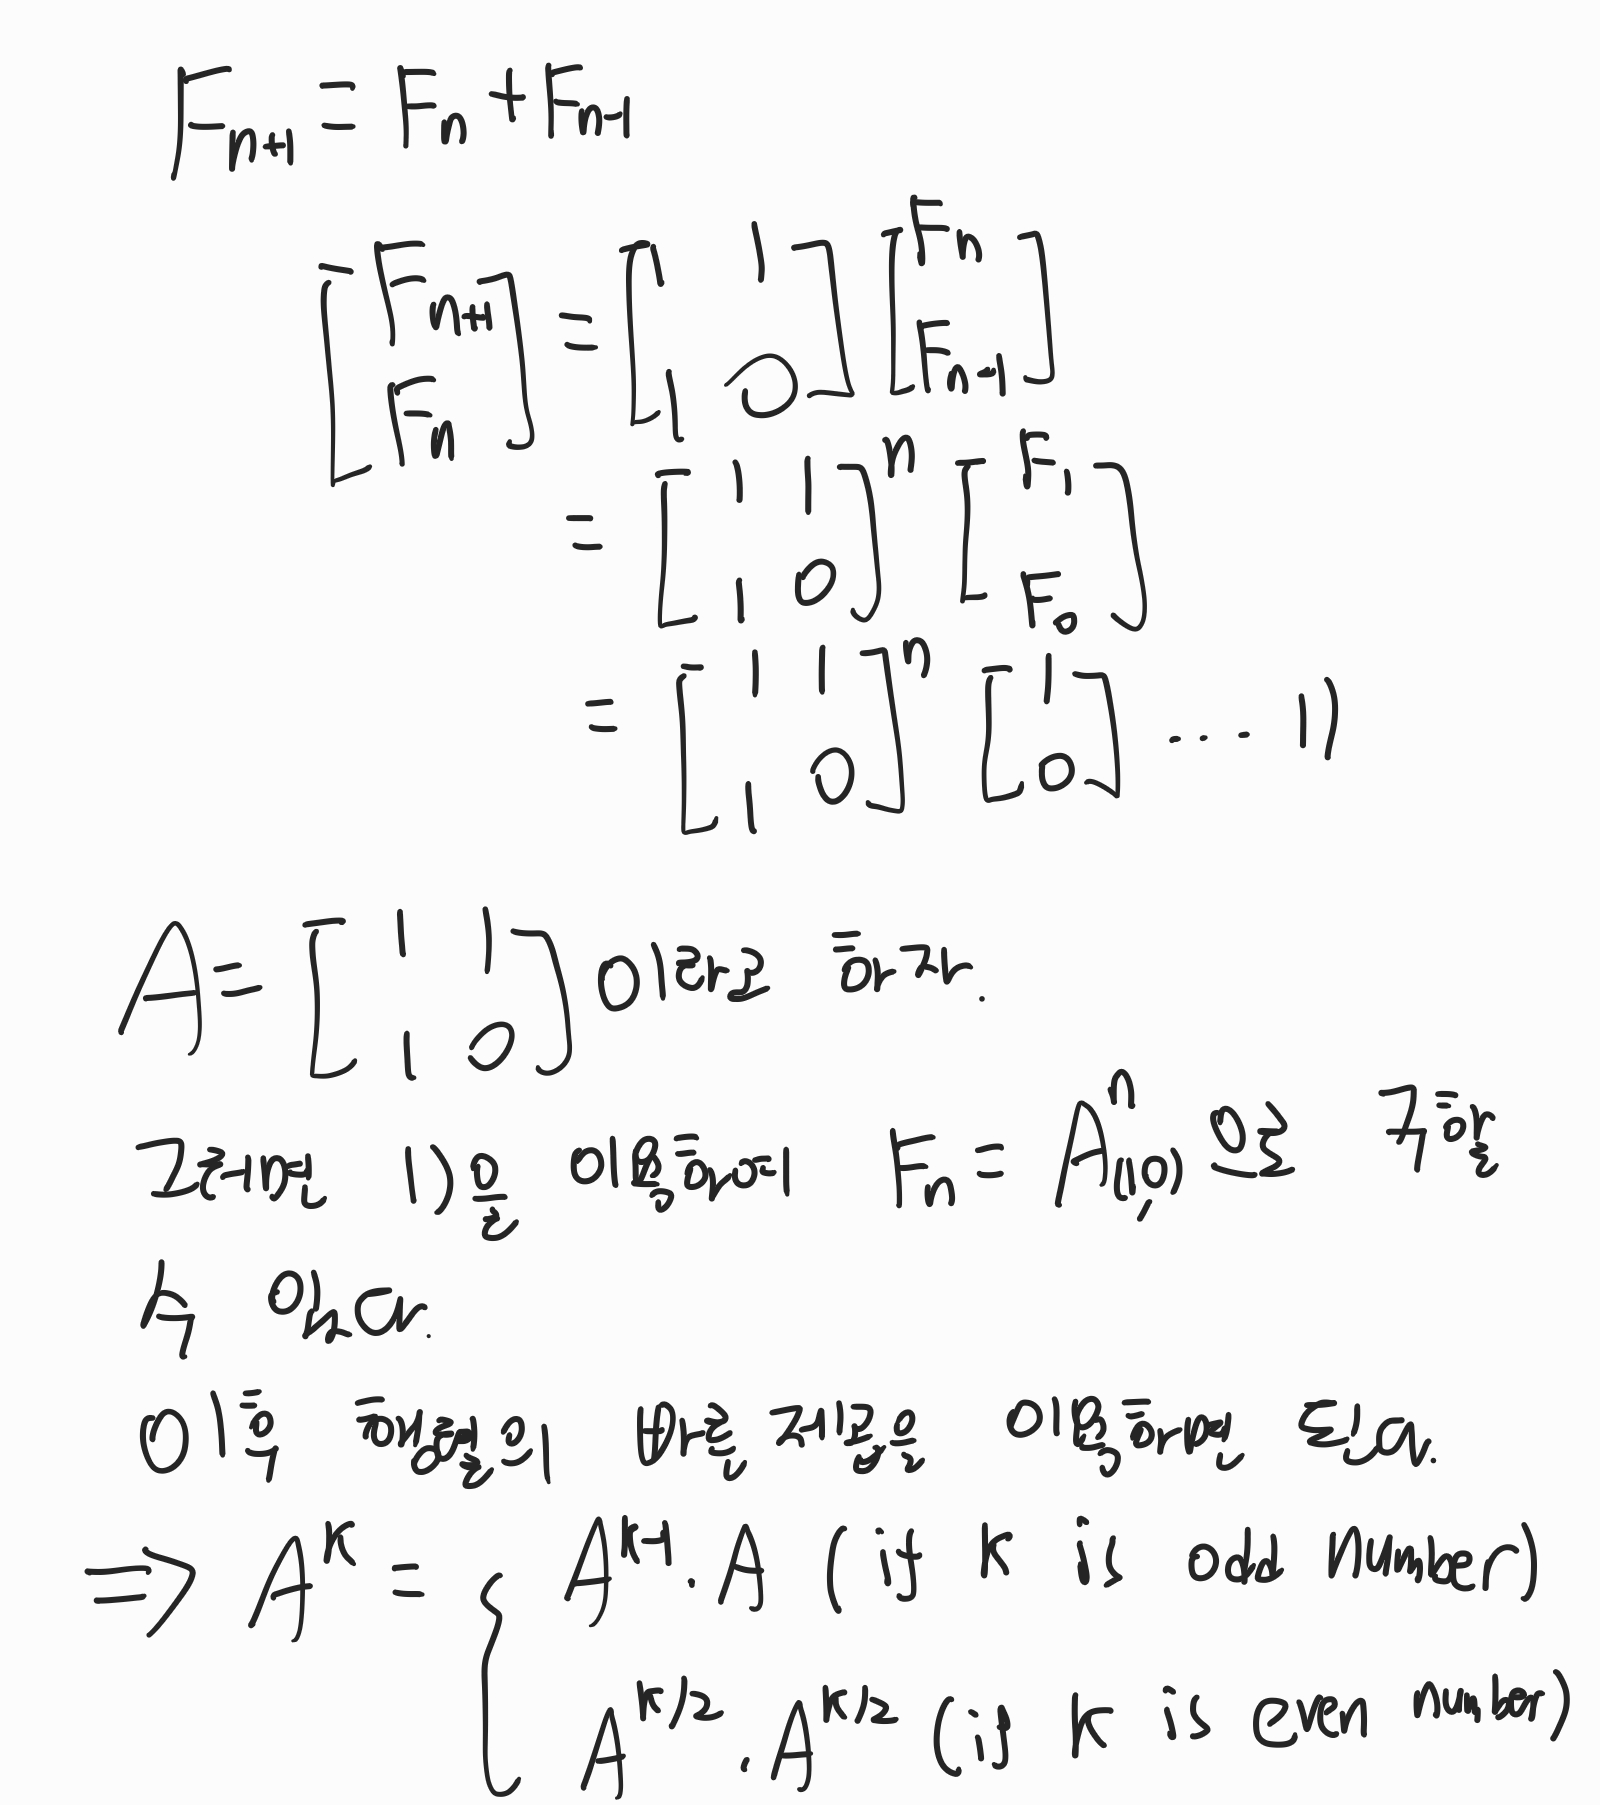 F_{n+1} = F_n + F_{n-1}
[F_{n+1} F_n] = [1 1 1 0] [F_n F_{n-1}]
= [1 1 1 0]^n [F_1 F_0]
= [1 1 1 0]^n [1 0] .... 1)
A = [1 1 1 0] 이라고 하자.
그러면 1)을 이용하여 F_n = A^n_{(1,0)} 으로 구할
수 있다.
이후 행렬의 빠른 제곱을 이용하면 된다.
⇒ A^k = { A^{k-1} · A (if k is odd number)
A^{k/2} · A^{k/2} (if k is even number)